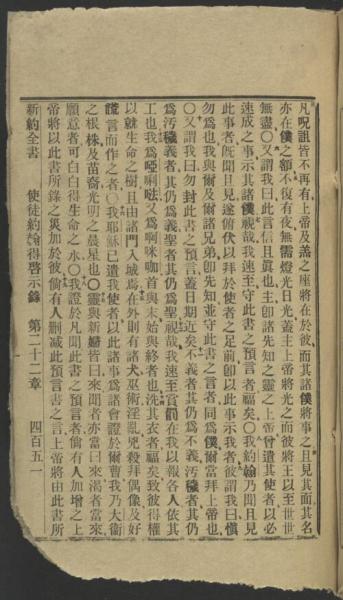 凡呪詛皆不再有上帝及羔之座將在於彼而其諸僕將事之且見其面其名
亦在僕之額不復有夜無需燈光日光蓋主上帝將光之而彼將王以至世世
無盡○又謂我曰此言信且眞也主卽諸先知之靈之上帝曾遣其使者以必
速成之事示其諸僕視哉我速至守此書之預言者福矣○我約翰乃聞且見
此事者旣聞且見遂俯伏以拜於使者之足前卽以此事示我者彼謂我曰愼
勿爲也我與爾及爾諸兄弟卽先知並守此書之言者同爲僕爾當拜上帝也
○又謂我曰勿封此書之預言蓋日期近矣不義者其仍爲不義污穢者其仍
爲污穢義者其仍爲義聖者其仍爲聖視哉我速至賞罰在我以報各人依其
工也我爲啞唎㕭又爲啊咪咖首與末始與終者也洗其衣者福矣致彼得權
以就生命之樹且由諸門入城焉在外則有諸犬巫術淫亂兇殺拜偶像及好
謊言而作之者○我耶穌已遣我使者以此諸事爲諸會證於爾曹我乃大衞
之根株及苗裔光明之晨星也○靈與新婦皆曰來聞者亦當曰來渴者當來
願意者可白白得生命之水○我證於凡聞此書之預言者倘有人加增之上
帝將以此書所錄之災加於彼倘有人刪減此預言書之言上帝將由此書所
新約全書 使徒約翰得啓示錄 第二十二章 四百五一